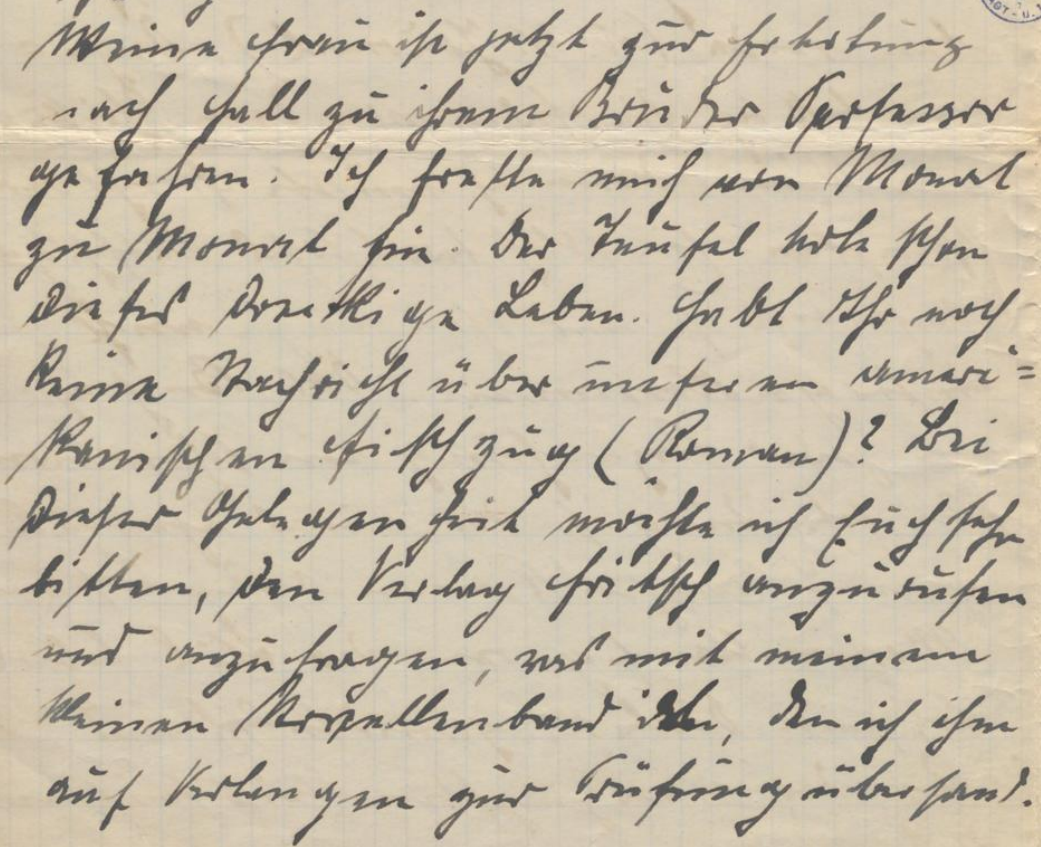 Meine Frau ist jetzt zur Erholung
nach Hall zu ihrem Bruder Professor
gefahren. Ich frette mich von Monat
zu Monat hin. Der Teufel hole schon
dieses dreckige Leben. Habt Ihr noch
keine Nachricht über unseren ameri=
kanischen Fischzug (Roman)? Bei
dieser Gelegenheit möchte ich Euch sehr
bitten, den Verlag Fritsch anzurufen
und anzufragen, was mit meinem
kleinen Novellenband ist, den ich ihm
auf Verlangen zur Prüfung übersand.